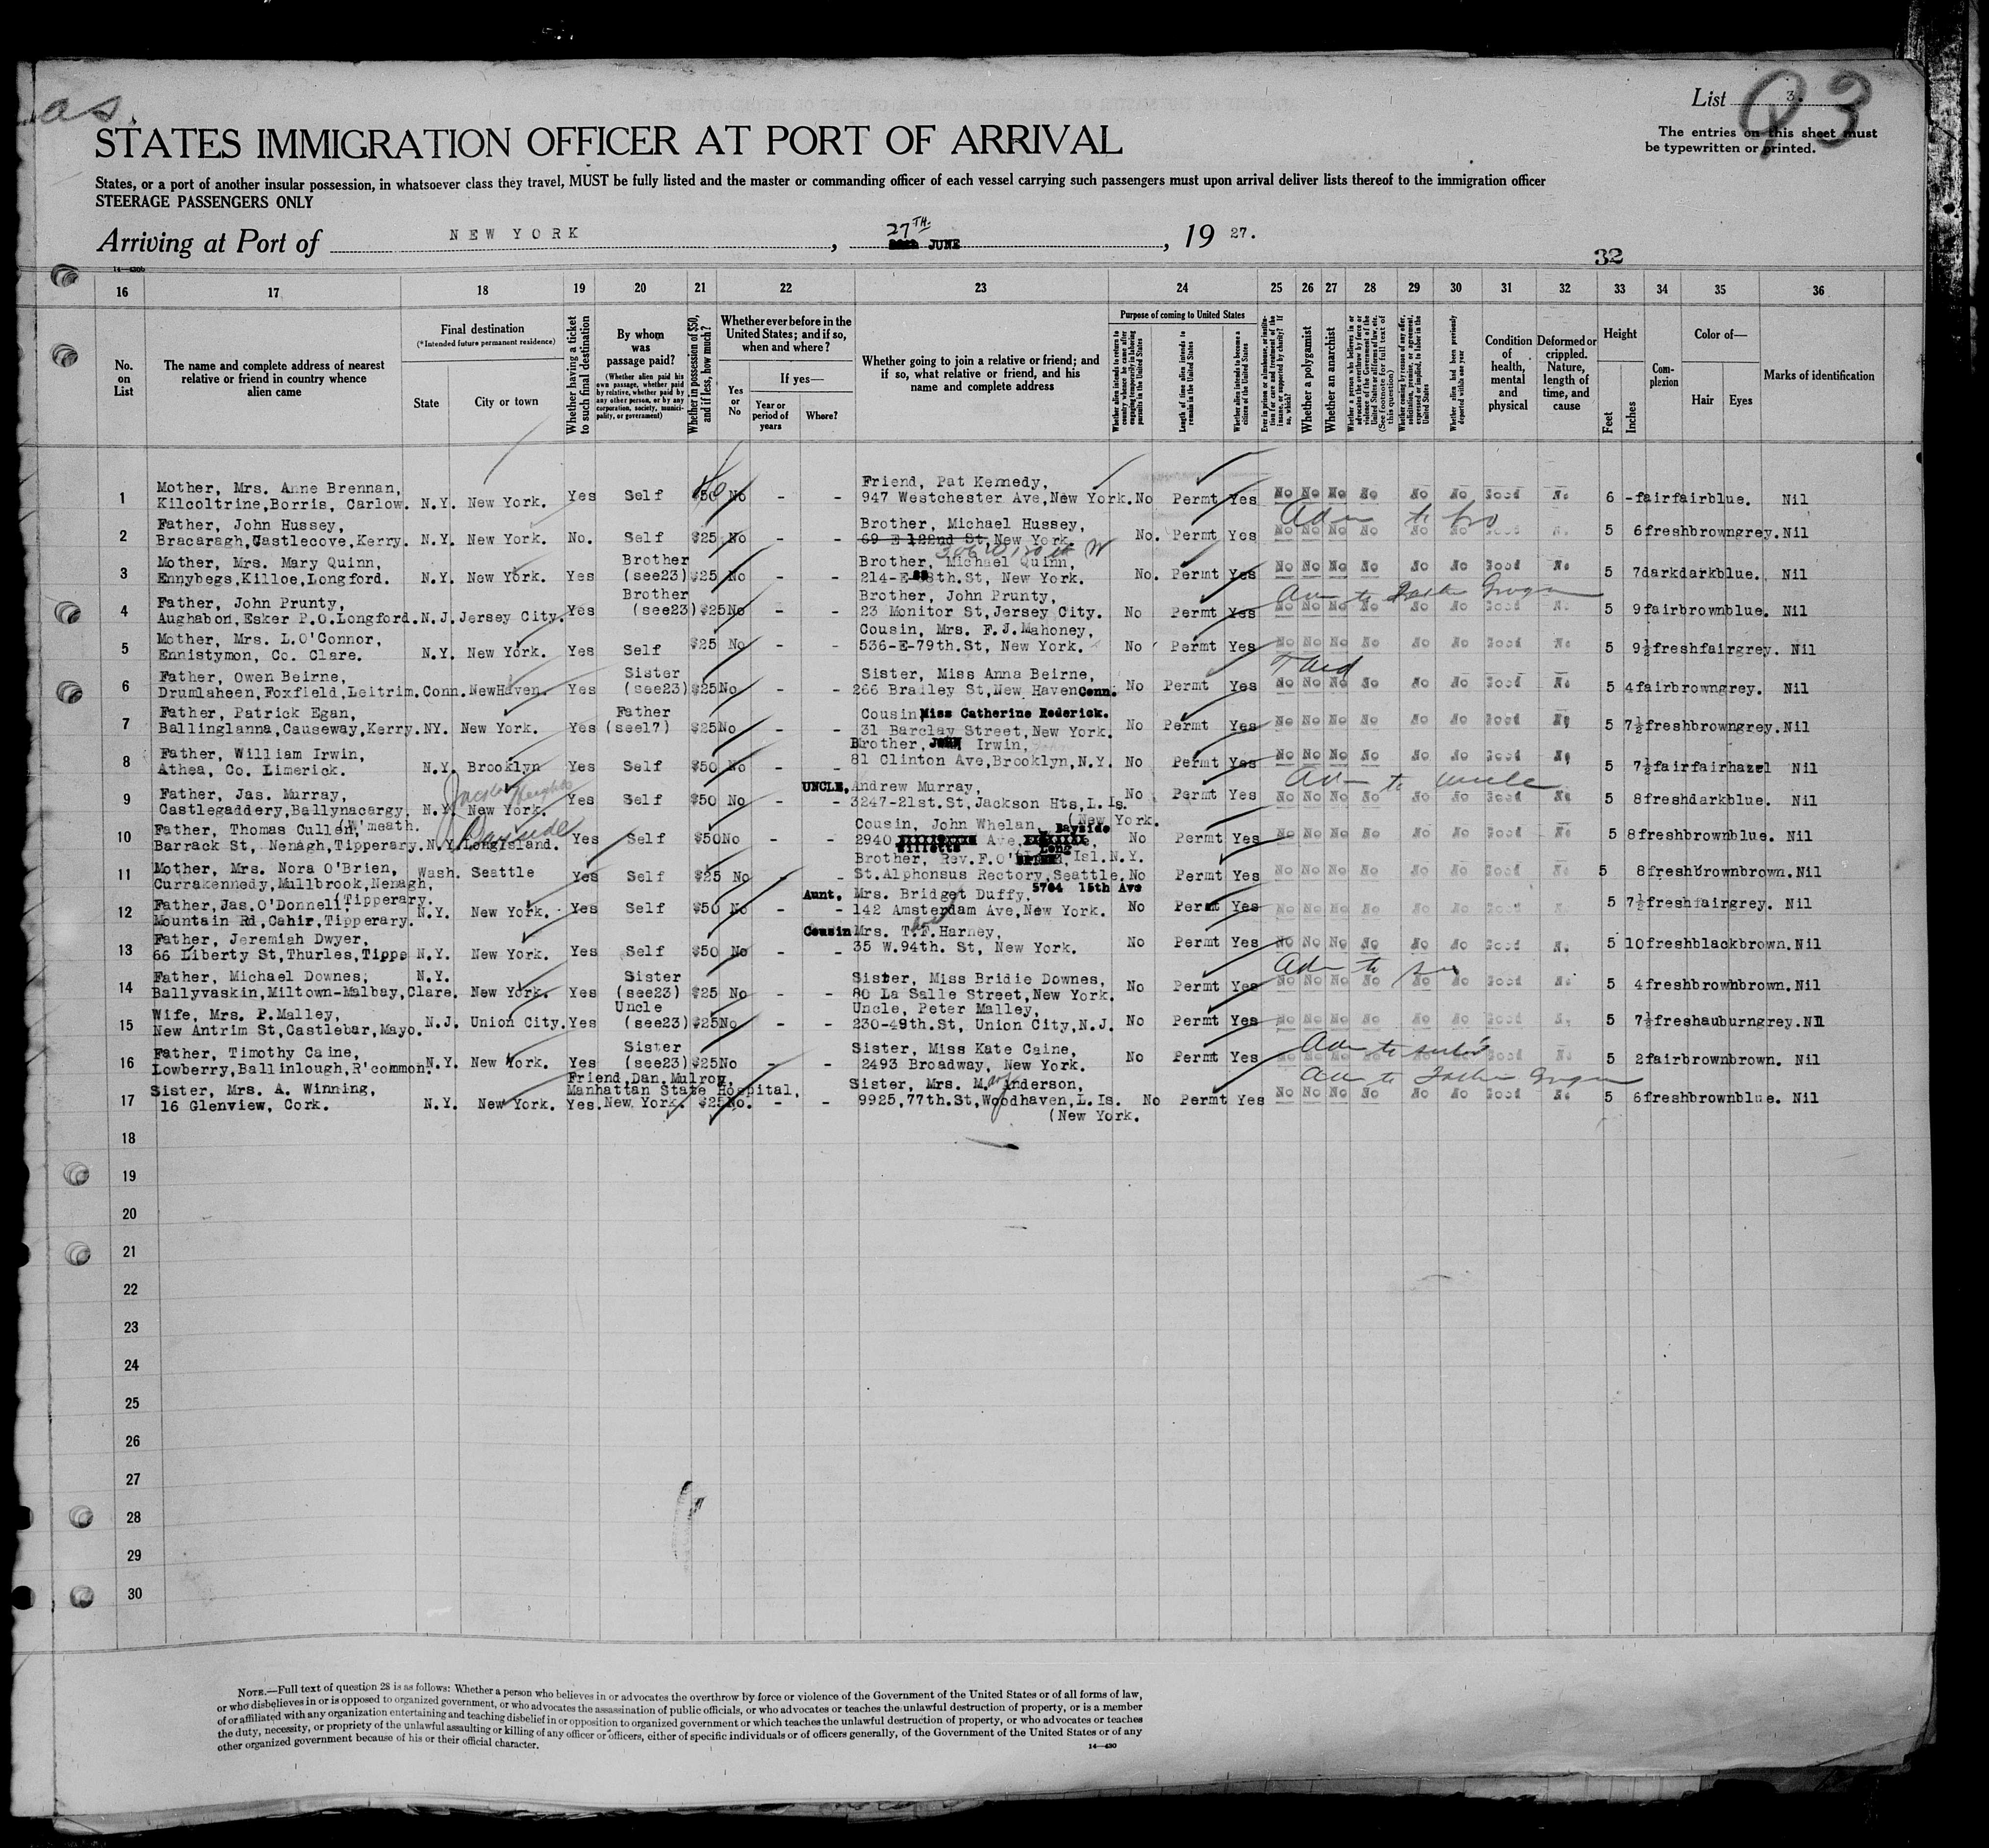 as.
List 3.
The entries on this sheet must
be typewritten or printed.
STATES IMMIGRATION OFFICER AT PORT OF ARRIVAL
States, or a port of another insular possession, in whatsoever class they travel, MUST be fully listed and the master or commanding officer of each vessel carrying such passengers must upon arrival deliver lists thereof to the immigration officer
STEERAGE PASSENGERS ONLY
Arriving at Port of NEW YORK, 27TH. JUNE, 1927.
32
16 17 18 19 20 21 22 23 24 25 26 27 28 29 30 31 32 33 34 35 36
No. on List
The name and complete address of nearest relative or friend in country whence alien came
Final destination
(*Intended future permanent residence)
State
City or town
Whether having a ticket to such final destination
By whom was passage paid?
(Whether alien paid his own passage, whether paid by relative, whether paid by any other person, or by any corporation, society, municipality, or government)
Whether in possession of $50, and if less, how much?
Whether ever before in the United States; and if so, when and where?
Yes or No
If yes—
Year or period of years
Where?
Whether going to join a relative or friend; and if so, what relative or friend, and his name and complete address
Purpose of coming to United States
Whether alien intends to return to country whence he came after engaging temporarily in laboring pursuits in the United States
Length of time alien intends to remain in the United States
Whether alien intends to become a citizen of the United States
Whether a polygamist
Whether an anarchist
Whether alien had been previously deported within one year
Condition of health, mental and physical
Deformed or crippled. Nature, length of time, and cause
Height
Feet
Inches
Complexion
Color of—
Hair
Eyes
Marks of identification
1 Mother, Mrs. Anne Brennan,
Kilcoltrine,Borris, Carlow. N.Y. New York. Yes Self $50 No - - Friend, Pat Kennedy,
947 Westchester Ave,New York. No Permt Yes No No No No No No Good No 6 - fair fair blue. Nil
2 Father, John Hussey,
Bracaragh,Castlecove,Kerry. N.Y. New York. No. Self $25 No - - Brother, Michael Hussey,
69 E 122nd St,New York. No. Permt Yes No No No No No No Good No 5 6 fresh brown grey. Nil
3 Mother, Mrs. Mary Quinn,
Ennybegs,Killoe,Longford. N.Y. New York. Yes Brother (see23) $25 No - - Brother, Michael Quinn,
214-E- 8th.St, New York. No. Permt Yes No No No No No No Good No 5 7 dark dark blue. Nil
4 Father, John Prunty,
Aughabon,Esker P.O.Longford. N.J. Jersey City. Yes Brother (see23) $25 No - - Brother, John Prunty,
23 Monitor St,Jersey City. No Permt Yes No No No No No No Good No 5 9 fair brown blue. Nil
5 Mother, Mrs. L.O'Connor,
Ennistymon, Co. Clare. N.Y. New York. Yes Self $25 No - - Cousin, Mrs. F.J.Mahoney,
536-E-79th.St, New York. No Permt Yes No No No No No No Good No 5 9½ fresh fair grey. Nil
6 Father, Owen Beirne,
Drumlaheen,Foxfield,Leitrim. Conn. NewHaven. Yes Sister (see23) $25 No - - Sister, Miss Anna Beirne,
266 Bradley St,New Haven Conn. No Permt Yes No No No No No No Good No 5 4 fair brown grey. Nil
7 Father, Patrick Egan,
Ballinglanna,Causeway,Kerry. NY. New York. Yes Father (see17) $25 No - - Cousin Miss Catherine Rederick.
31 Barclay Street,New York. No Permt Yes No No No No No No Good No 5 7½ fresh brown grey. Nil
8 Father, William Irwin,
Athea, Co. Limerick. N.Y. Brooklyn Yes Self $50 No - - Brother, John Irwin,
81 Clinton Ave,Brooklyn,N.Y. No Permt Yes No No No No No No Good No 5 7½ fair fair hazel Nil
9 Father, Jas. Murray,
Castlegaddery,Ballynacargy, (W'meath. N.Y. New York. Yes Self $50 No - - UNCLE, Andrew Murray,
3247-21st.St,Jackson Hts,L.Is. (New York. No Permt Yes No No No No No No Good No 5 8 fresh dark blue. Nil
10 Father, Thomas Cullen,
Barrack St, Nenagh,Tipperary. N.Y. Long Island. Bayside Yes Self $50 No - - Cousin, John Whelan,
2940 Willetts Ave, Bayside Long Isl.N.Y. No Permt Yes No No No No No No Good No 5 8 fresh brown blue. Nil
11 Mother, Mrs. Nora O'Brien,
Currakennedy,Millbrook,Nenagh, (Tipperary. Wash. Seattle Yes Self $25 No - - Brother, Rev.F.O'Brien,
St.Alphonsus Rectory,Seattle. 5704 15th Ave No Permt Yes No No No No No No Good No 5 8 fresh brown brown. Nil
12 Father,Jas.O'Donnell,
Mountain Rd,Cahir,Tipperary. N.Y. New York. Yes Self $50 No - - Aunt, Mrs. Bridget Duffy,
142 Amsterdam Ave,New York. No Permt Yes No No No No No No Good No 5 7½ fresh fair grey. Nil
13 Father, Jeremiah Dwyer,
66 Liberty St,Thurles,Tipps N.Y. New York. Yes Self $50 No - - Cousin Mrs. T.F.Harney,
35 W.94th. St, New York. No Permt Yes No No No No No No Good No 5 10 fresh black brown. Nil
14 Father, Michael Downes,
Ballyvaskin,Miltown-Malbay,Clare. N.Y. New York. Yes Sister (see23) $25 No - - Sister, Miss Bridie Downes,
80 La Salle Street,New York. No Permt Yes No No No No No No Good No 5 4 fresh brown brown. Nil
15 Wife, Mrs. P.Malley,
New Antrim St,Castlebar,Mayo. N.J. Union City. Yes Uncle (see23) $25 No - - Uncle, Peter Malley,
230-49th.St, Union City,N.J. No Permt Yes No No No No No No Good No 5 7½ fresh auburn grey. Nil
16 Father, Timothy Caine,
Lowberry,Ballinlough,R'common. N.Y. New York. Yes Sister (see23) $25 No - - Sister, Miss Kate Caine,
2493 Broadway, New York. No Permt Yes No No No No No No Good No 5 2 fair brown brown. Nil
17 Sister, Mrs. A. Winning,
16 Glenview, Cork. N.Y. New York. Yes. Friend,Dan.Mulroy,
Manhattan State Hospital,
New York. $25 No. - - Sister, Mrs. M. Anderson,
9925,77th.St,Woodhaven,L.Is. (New York. No Permt Yes No No No No No No Good No 5 6 fresh brown blue. Nil
18
19
20
21
22
23
24
25
26
27
28
29
30
NOTE.—Full text of question 28 is as follows: Whether a person who believes in or advocates the overthrow by force or violence of the Government of the United States or of all forms of law,
or who disbelieves in or is opposed to organized government, or who advocates the assassination of public officials, or who advocates or teaches the unlawful destruction of property, or is a member
of or affiliated with any organization entertaining and teaching disbelief in or opposition to organized government or which teaches the unlawful destruction of property, or who advocates or teaches
the duty, necessity, or propriety of the unlawful assaulting or killing of any officer or officers, either of specific individuals or of officers generally, of the Government of the United States or of any
other organized government because of his or their official character.
14—430